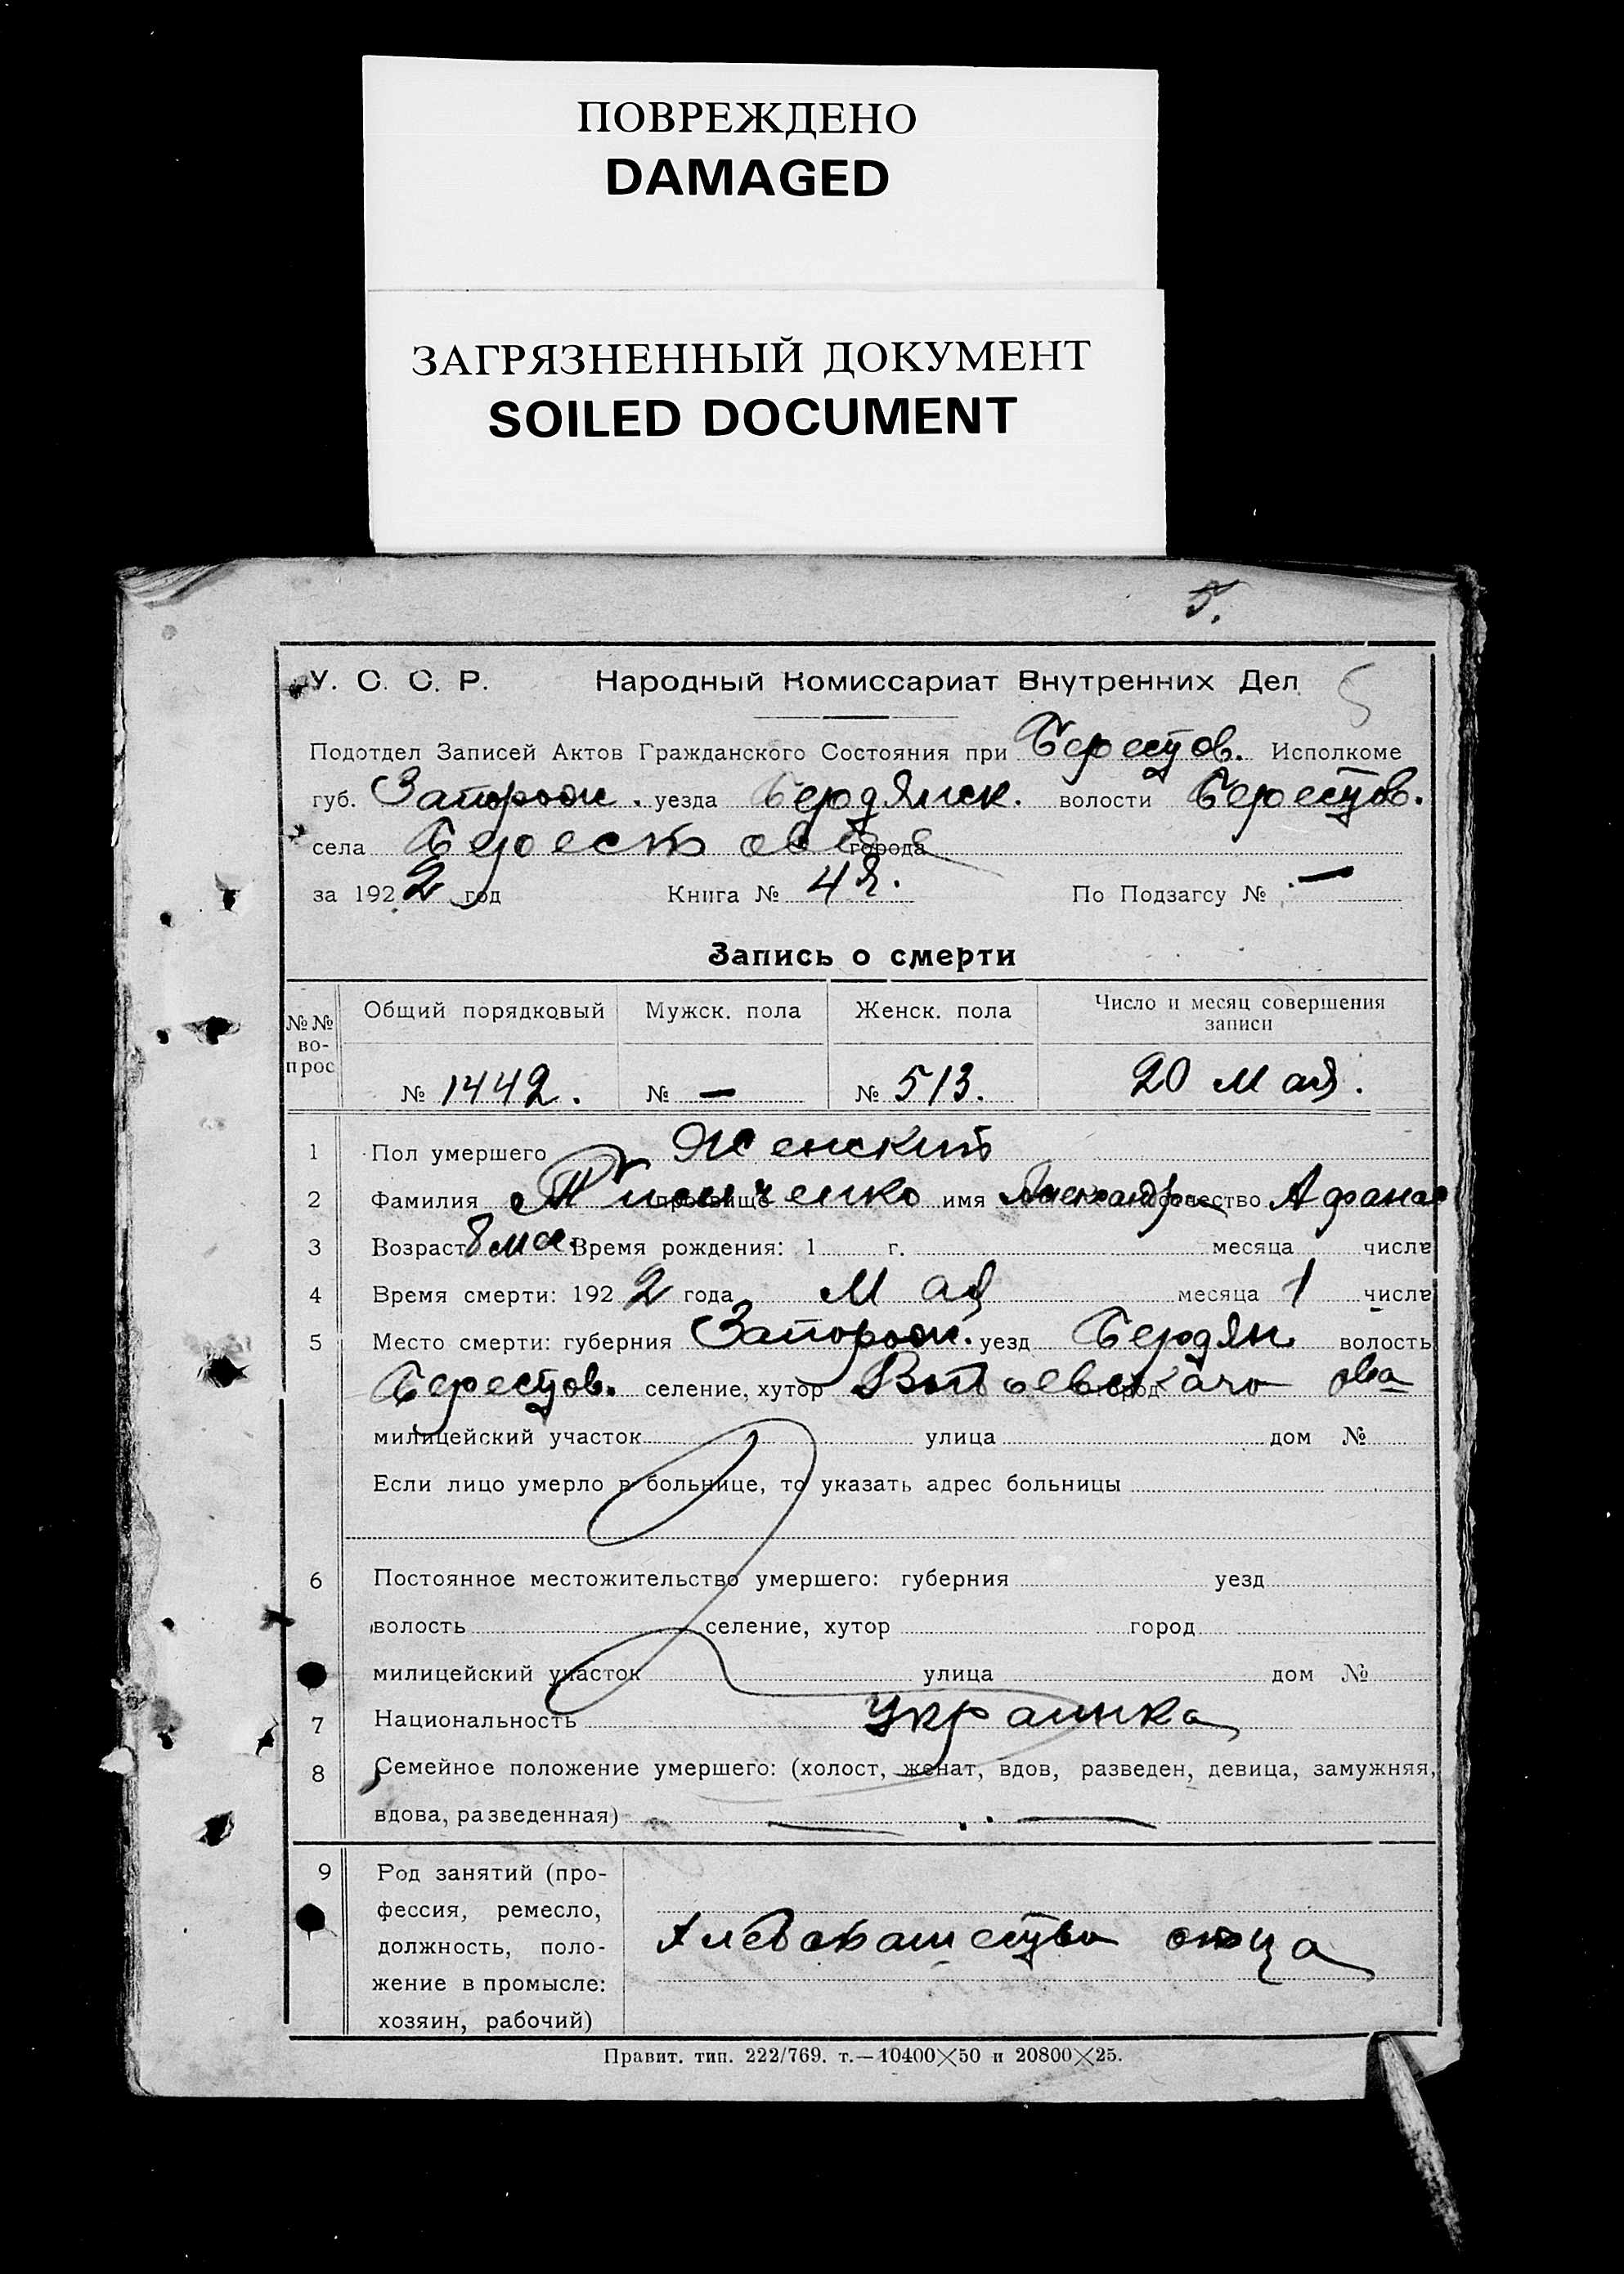 ПОВРЕЖДЕНО
DAMAGED
ЗАГРЯЗНЕННЫЙ ДОКУМЕНТ
SOILED DOCUMENT
5.
У. С. С. Р. Народный Комиссариат Внутренних Дел 5
Подотдел Записей Актов Гражданского Состояния при Берестов. Исполкоме
губ. Запорож. уезда Бердянск. волости Берестов.
села Берестовое города
за 1922 год Книга № 4я. По Подзагсу № —
Запись о смерти
№№ вопрос Общий порядковый Мужск. пола Женск. пола Число и месяц совершения записи
№ 1442. № — № 513. 20 Мая.
1 Пол умершего Женский
2 Фамилия прозвище имя Александра отчество Афанас
3 Возраст 8 мс. Время рождения: 1 г. месяца числа
4 Время смерти: 1922 года Мая месяца 1 числа
5 Место смерти: губерния Запорож. уезд Бердян волость
Берестов. селение, хутор город
милицейский участок улица дом №
Если лицо умерло в больнице, то указать адрес больницы
6 Постоянное местожительство умершего: губерния уезд
волость селение, хутор город
милицейский участок улица дом №
7 Национальность Украинка
8 Семейное положение умершего: (холост, женат, вдов, разведен, девица, замужняя,
вдова, разведенная) —
9 Род занятий (про-
фессия, ремесло,
должность, поло- Хлебопашество отца
жение в промысле:
хозяин, рабочий)
Правит. тип. 222/769. т.—10400×50 и 20800×25.